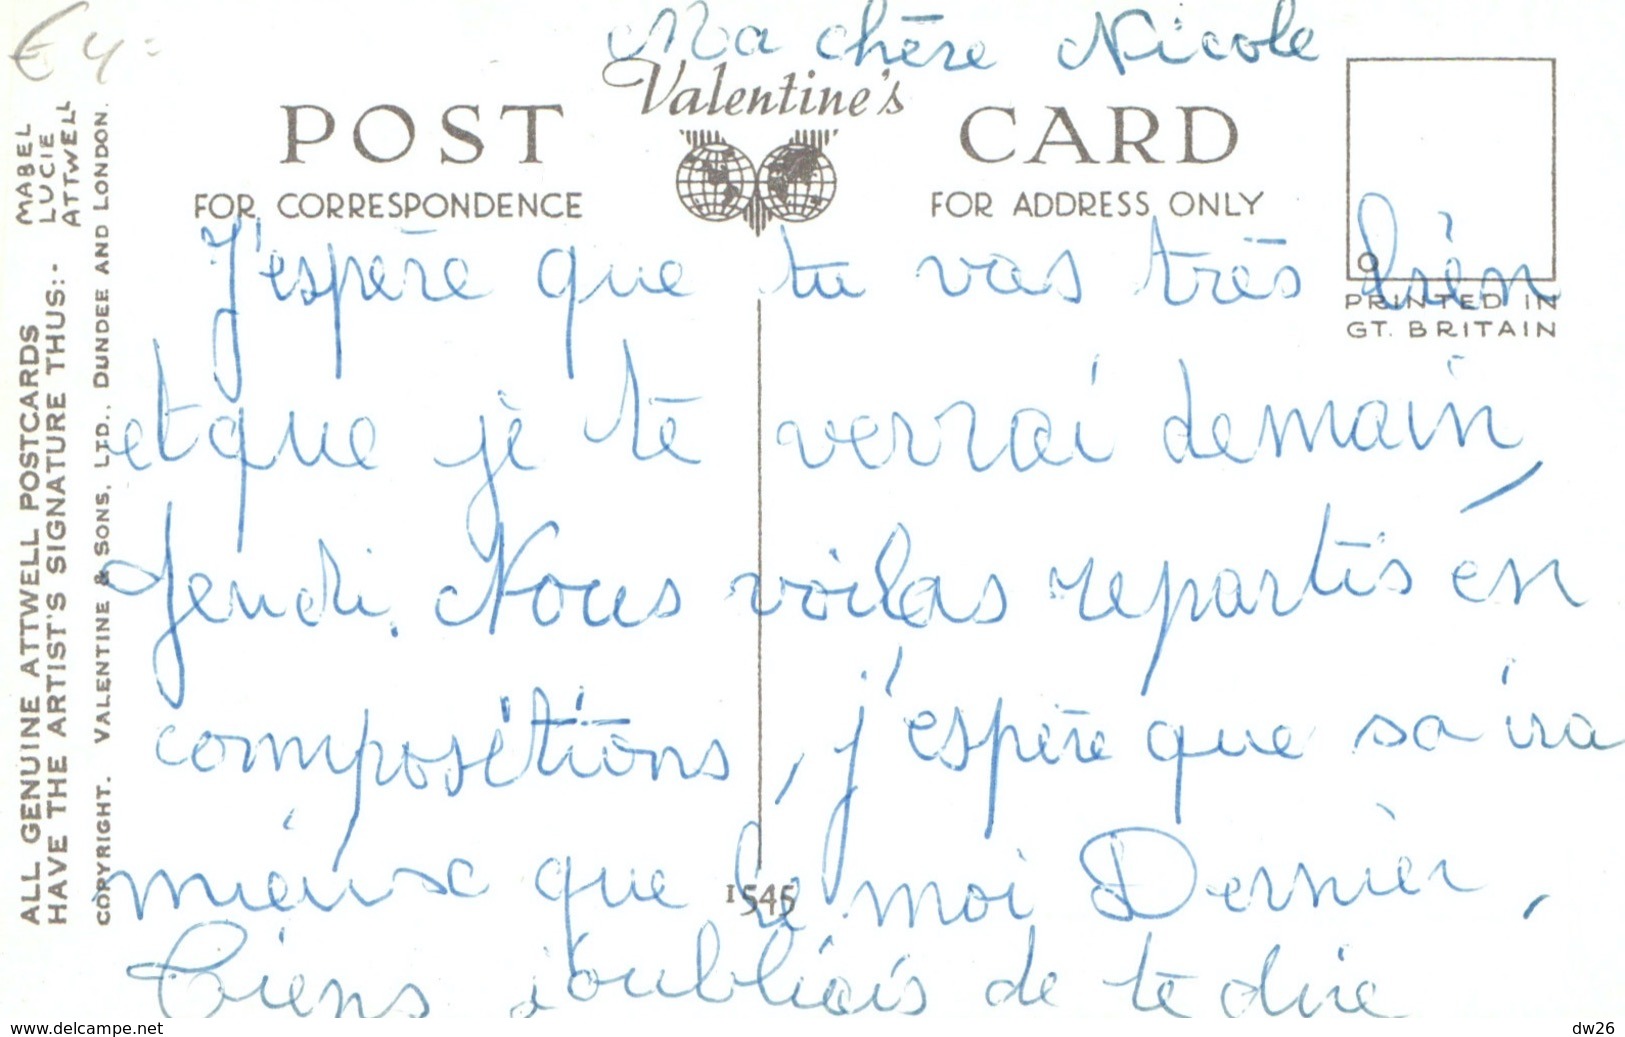 € 4
Ma chère Nicole
Valentine's
POST CARD
FOR CORRESPONDENCE
FOR ADDRESS ONLY
PRINTED IN
GT. BRITAIN
J'espère que tu vas très bien
et que je te verrai demain,
Jeudi. Nous voilas repartis en
compositions, j'espère que sa ira
mieux que le moi Dernier,
Tiens j'oubliais de te dire
1545
ALL GENUINE ATTWELL POSTCARDS
HAVE THE ARTIST'S SIGNATURE THUS:-
MABEL
LUCIE
ATTWELL
COPYRIGHT. VALENTINE & SONS, LTD., DUNDEE AND LONDON.
www.delcampe.net
dw26